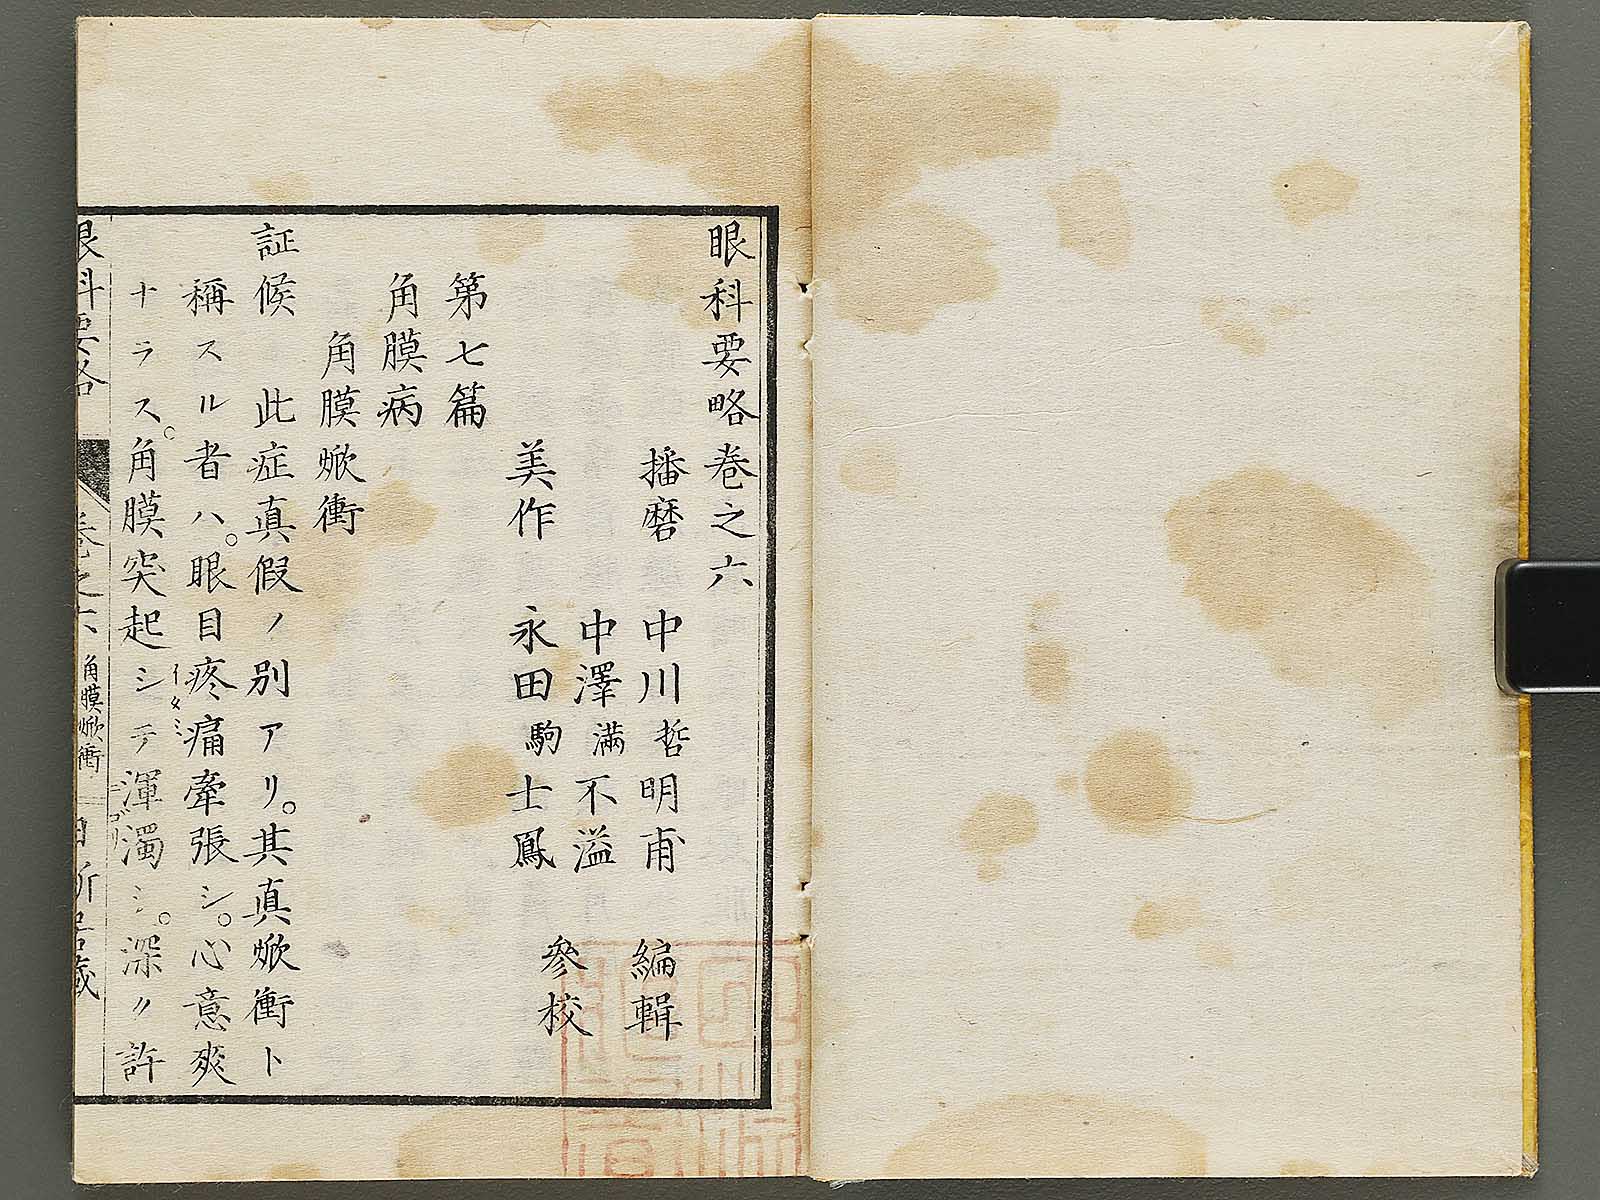 眼科要略巻之六
播磨 中川哲明甫 編輯
中澤満不溢
美作 永田駒士鳳 參校
第七篇
角膜病
角膜焮衝
証候 此症真假ノ別アリ。其真焮衝ト
稱スル者ハ。眼目疼痛牽張シ。心意爽
イタミ
ナラス。角膜突起シテ渾濁シ。深ク許
ニゴリ
眼科要略 巻之六 角膜焮衝